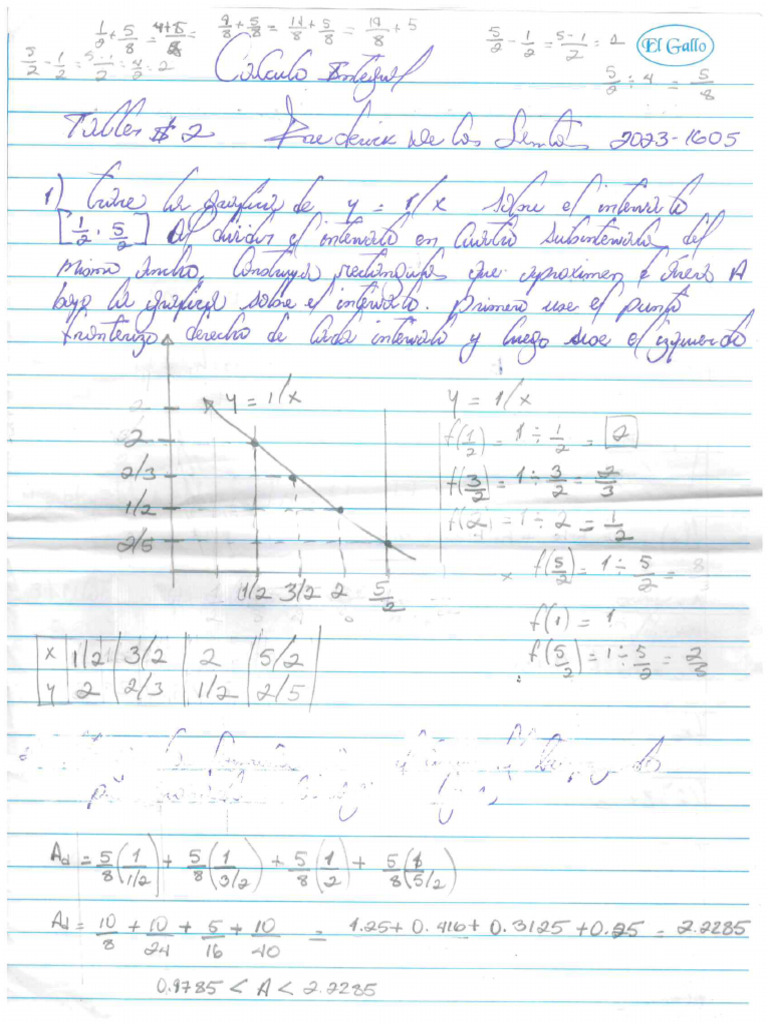 1/2 + 5/8 = 4+5/8 = 9/8 + 5/8 = 14/8 + 5/8 = 19/8 + 5
5/2 - 1/2 = 5-1/2 = 4/2 = 2
5/2 - 1/2 = 5-1/2 = 2
El Gallo
5/2 ÷ 4 = 5/8
Calculo Integral
Taller # 2 Frederick De los Santos 2023-1605
1) trace la grafica de y = 1/x sobre el intervalo
[1/2, 5/2] Al dividir el intervalo en cuatro subintervalos del
mismo ancho, Construya rectangulos que aproximen el área A
bajo la grafica sobre el intervalo. primero use el punto
fronterizo derecho de cada intervalo y luego use el izquierdo
y = 1/x
2
2/3
1/2
2/5
1/2 3/2 2 5/2
y = 1/x
f(1/2) = 1 ÷ 1/2 = 2
f(3/2) = 1 ÷ 3/2 = 2/3
f(2) = 1 ÷ 2 = 1/2
x f(5/2) = 1 ÷ 5/2 =
f(1) = 1
f(5/2) = 1 ÷ 5/2 = 2/3
x 1/2 3/2 2 5/2
y 2 2/3 1/2 2/5
Ad = 5/8 (1/1/2) + 5/8 (1/3/2) + 5/8 (1/2) + 5/8 (1/5/2)
Ad = 10/8 + 10/24 + 5/16 + 10/40 = 1.25 + 0.416 + 0.3125 + 0.25 = 2.2285
0.9785 < A < 2.2285